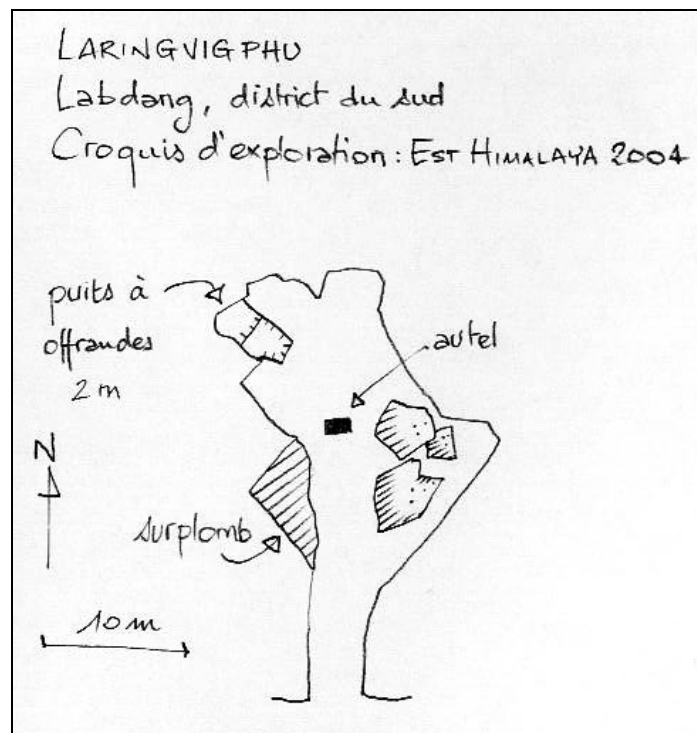 LARINGVIGPHU
Labdang, district du sud
Croquis d'exploration : EST HIMALAYA 2004
puits à
offrandes
2 m
autel
N
surplomb
10 m